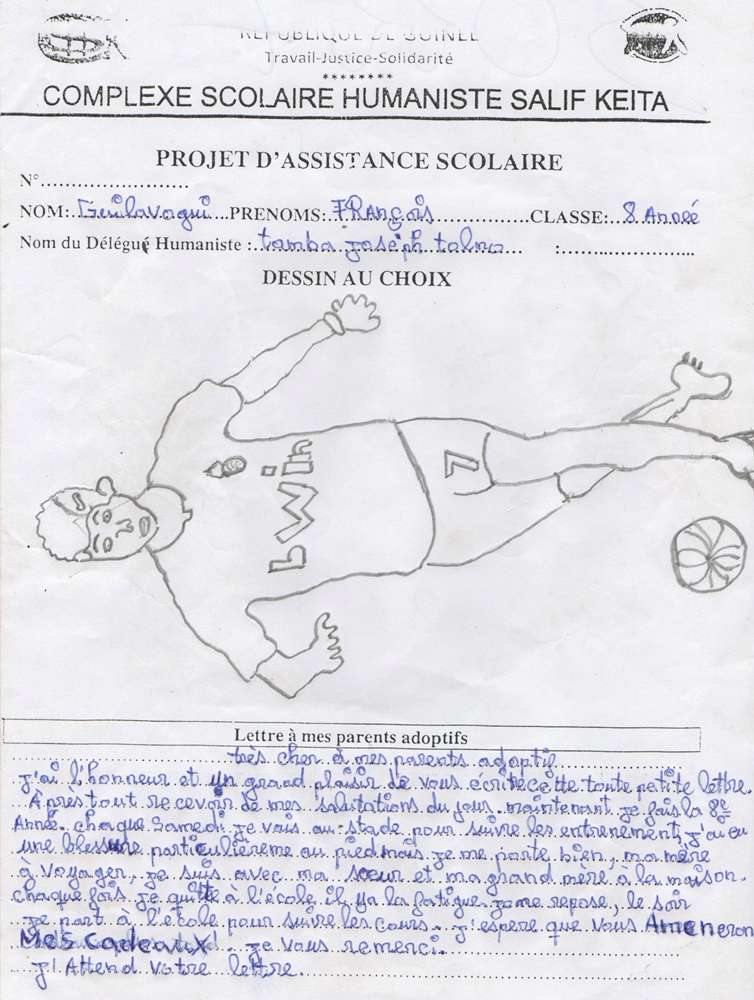 REPUBLIQUE DE GUINEE
Travail-Justice-Solidarité
********
COMPLEXE SCOLAIRE HUMANISTE SALIF KEITA
PROJET D'ASSISTANCE SCOLAIRE
N°.........................
NOM:..Guilavogui...PRENOMS:.FRANçois.................CLASSE:..8 Année
Nom du Délégué Humaniste :..tamba joseph tolno...... :......................
DESSIN AU CHOIX
7
bwin
Lettre à mes parents adoptifs
très cher à mes parents adoptif
j'ai l'honneur et un grand plaisir de vous écrire cette toute petite lettre.
Après tout recevoir de mes salutations du jour. maintenant je fais la 8e
Année. chaque Samedi je vais au stade pour suivre les entrenement, j'ai eu
une blessure particulièreme au pied mais je me porte bien, ma mère
à voyager, je suis avec ma sœur et ma grand mère à la maison.
chaque fois je quitte à l'école il ya la fatigue. je me repose, le soir
je part à l'école pour suivre les cours. j'espère que vous Ameneron
Mes cadeaux. je vous remerci.
j'Attend votre lettre.